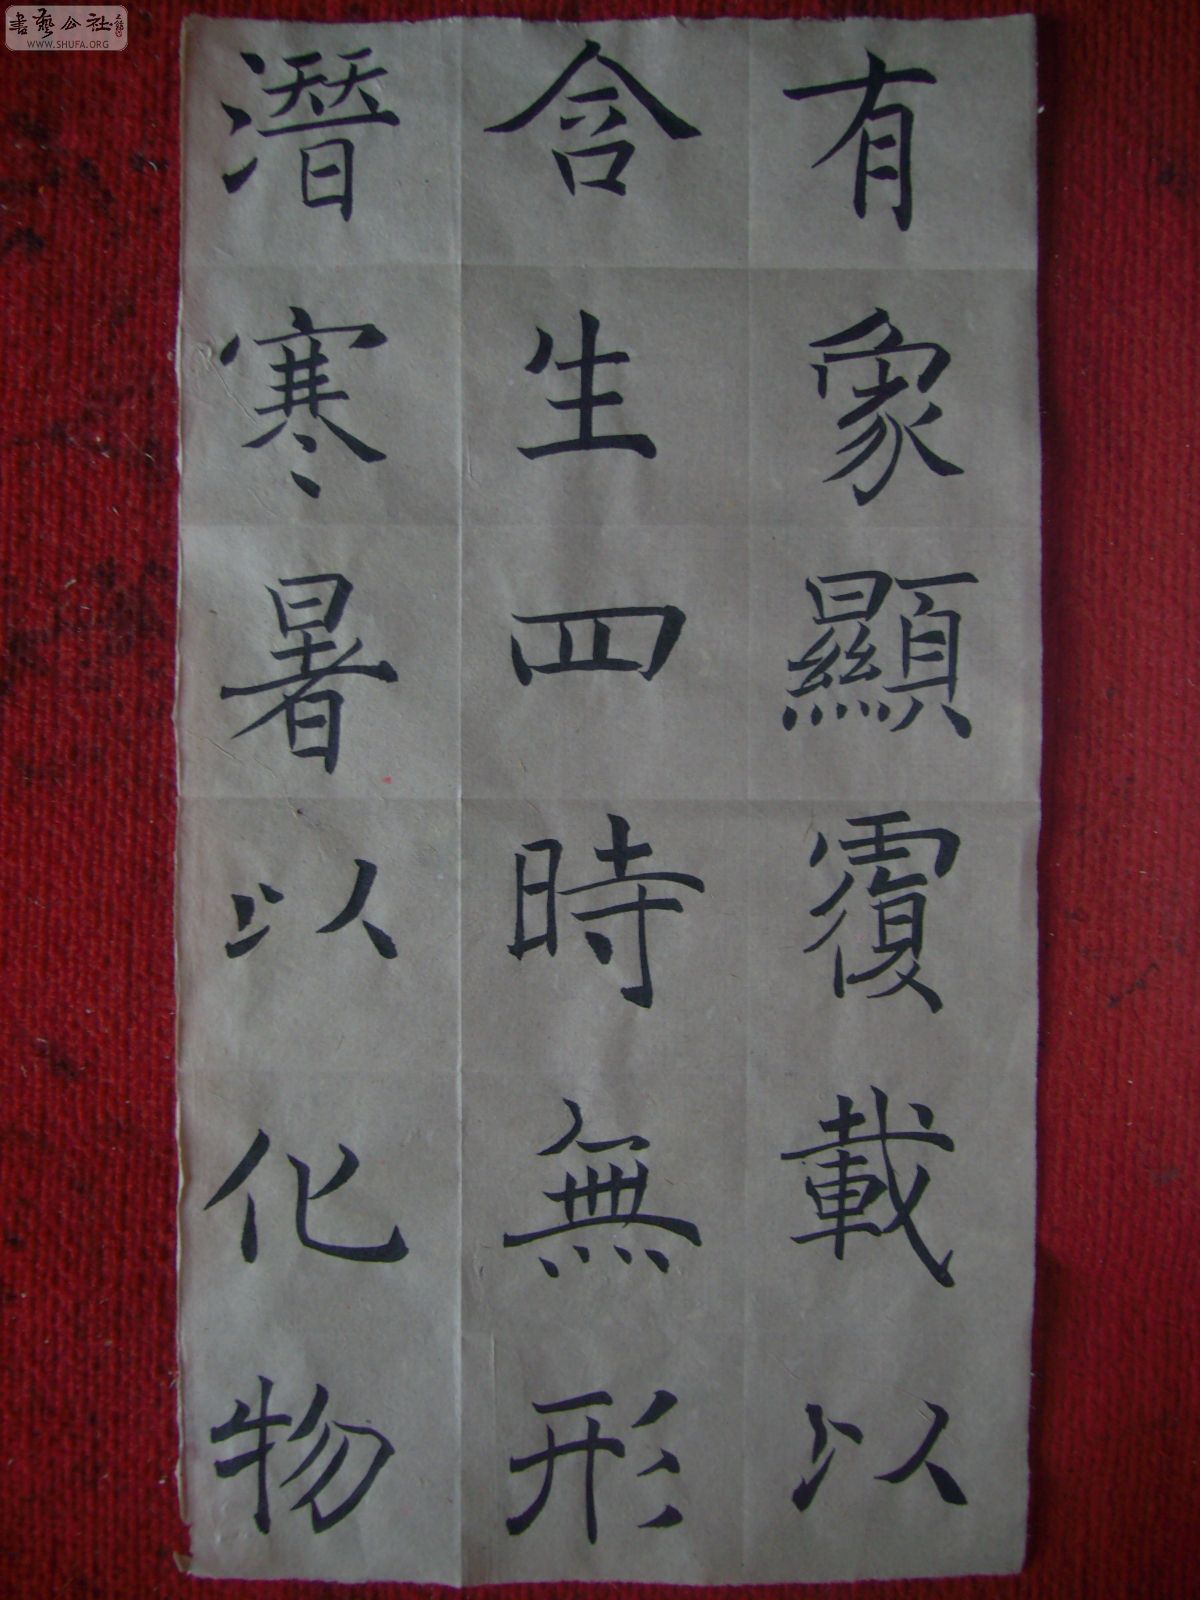 有象顯覆載以
含生四時無形
潛寒暑以化物
書藝公社
WWW.SHUFA.ORG